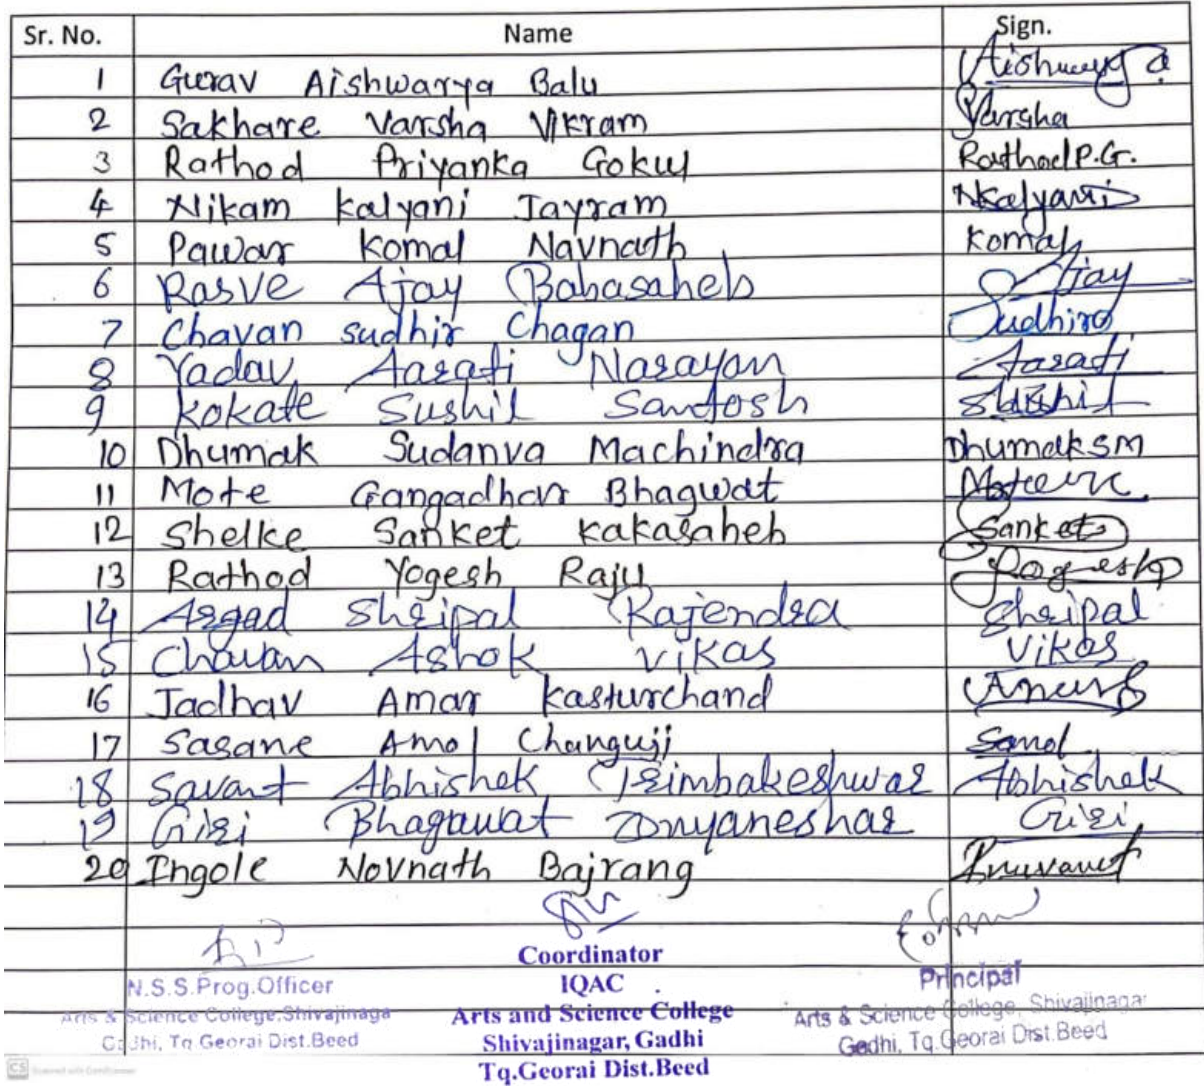 Sr. No. Name Sign.
1 Gurav Aishwarya Balu Aishwarya
2 Sakhare Varsha Vikram Varsha
3 Rathod Priyanka Gokul Rathod P.G.
4 Nikam Kalyani Jayram NKalyani
5 Pawar Komal Navnath Komal
6 Rasve Ajay Babasaheb Ajay
7 Chavan Sudhir Chagan Sudhir
8 Yadav Aarati Narayan Aarati
9 Kokate Sushil Santosh Sushil
10 Dhumak Sudanva Machindra Dhumak SM
11 Mote Gangadhar Bhagwat
12 Shelke Sanket Kakasaheb Sanket
13 Rathod Yogesh Raju Yogesh
14 Argad Shripal Rajendra Shripal
15 Chavan Ashok Vikas Vikas
16 Jadhav Amar Kasturchand
17 Sasane Amol Changuji
18 Savant Abhishek Trimbakeshwar Abhishek
19 Giri Bhagawat Dnyaneshar Giri
20 Ingole Novnath Bajrang
Coordinator
N.S.S.Prog.Officer IQAC Principal
Arts & Science College.Shivajinaga Arts and Science College Arts & Science College, Shivajinagar
Gadhi, Tq.Georai Dist.Beed Shivajinagar, Gadhi Gadhi, Tq.Georai Dist.Beed
Tq.Georai Dist.Beed
CS Scanned with CamScanner